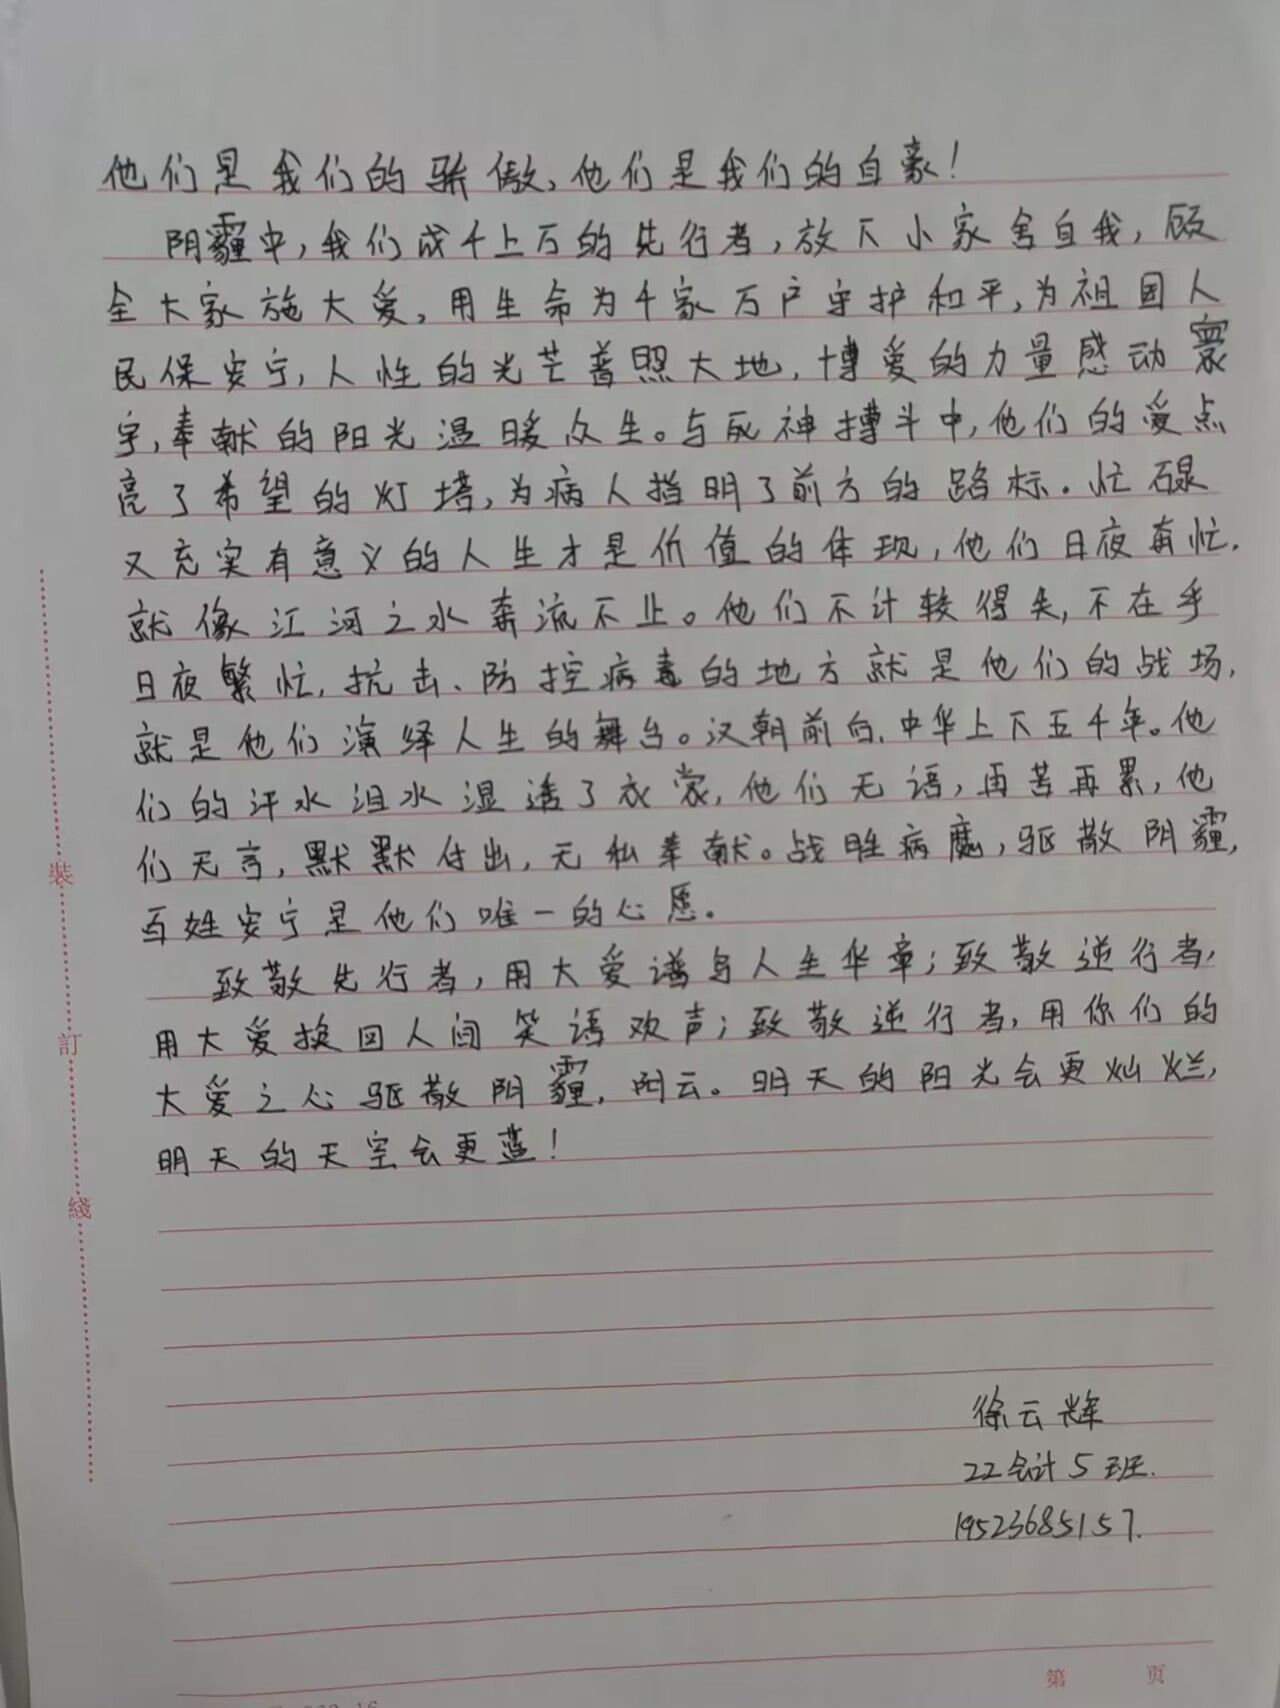 他们是我们的骄傲,他们是我们的自豪!
阴霾中,我们成千上万的先行者,放下小家舍自我,顾
全大家施大爱,用生命为千家万户守护和平,为祖国人
民保安宁,人性的光芒普照大地,博爱的力量感动寰
宇,奉献的阳光温暖众生。与死神搏斗中,他们的爱点
亮了希望的灯塔,为病人指明了前方的路标.忙碌
又充实有意义的人生才是价值的体现,他们日夜奔忙,
就像江河之水奔流不止。他们不计较得失,不在乎
日夜繁忙,抗击、防控病毒的地方就是他们的战场,
就是他们演绎人生的舞台。汉朝前后,中华上下五千年。他
们的汗水泪水湿透了衣裳,他们无语,再苦再累,他
们无言,默默付出,无私奉献。战胜病魔,驱散阴霾,
百姓安宁是他们唯一的心愿.
致敬先行者,用大爱谱写人生华章;致敬逆行者,
用大爱换回人间笑语欢声;致敬逆行者,用你们的
大爱之心驱散阴霾,阴云。明天的阳光会更灿烂,
明天的天空会更蓝!
徐云辉
22会计5班.
19523685157.
裝
訂
綫
第 页